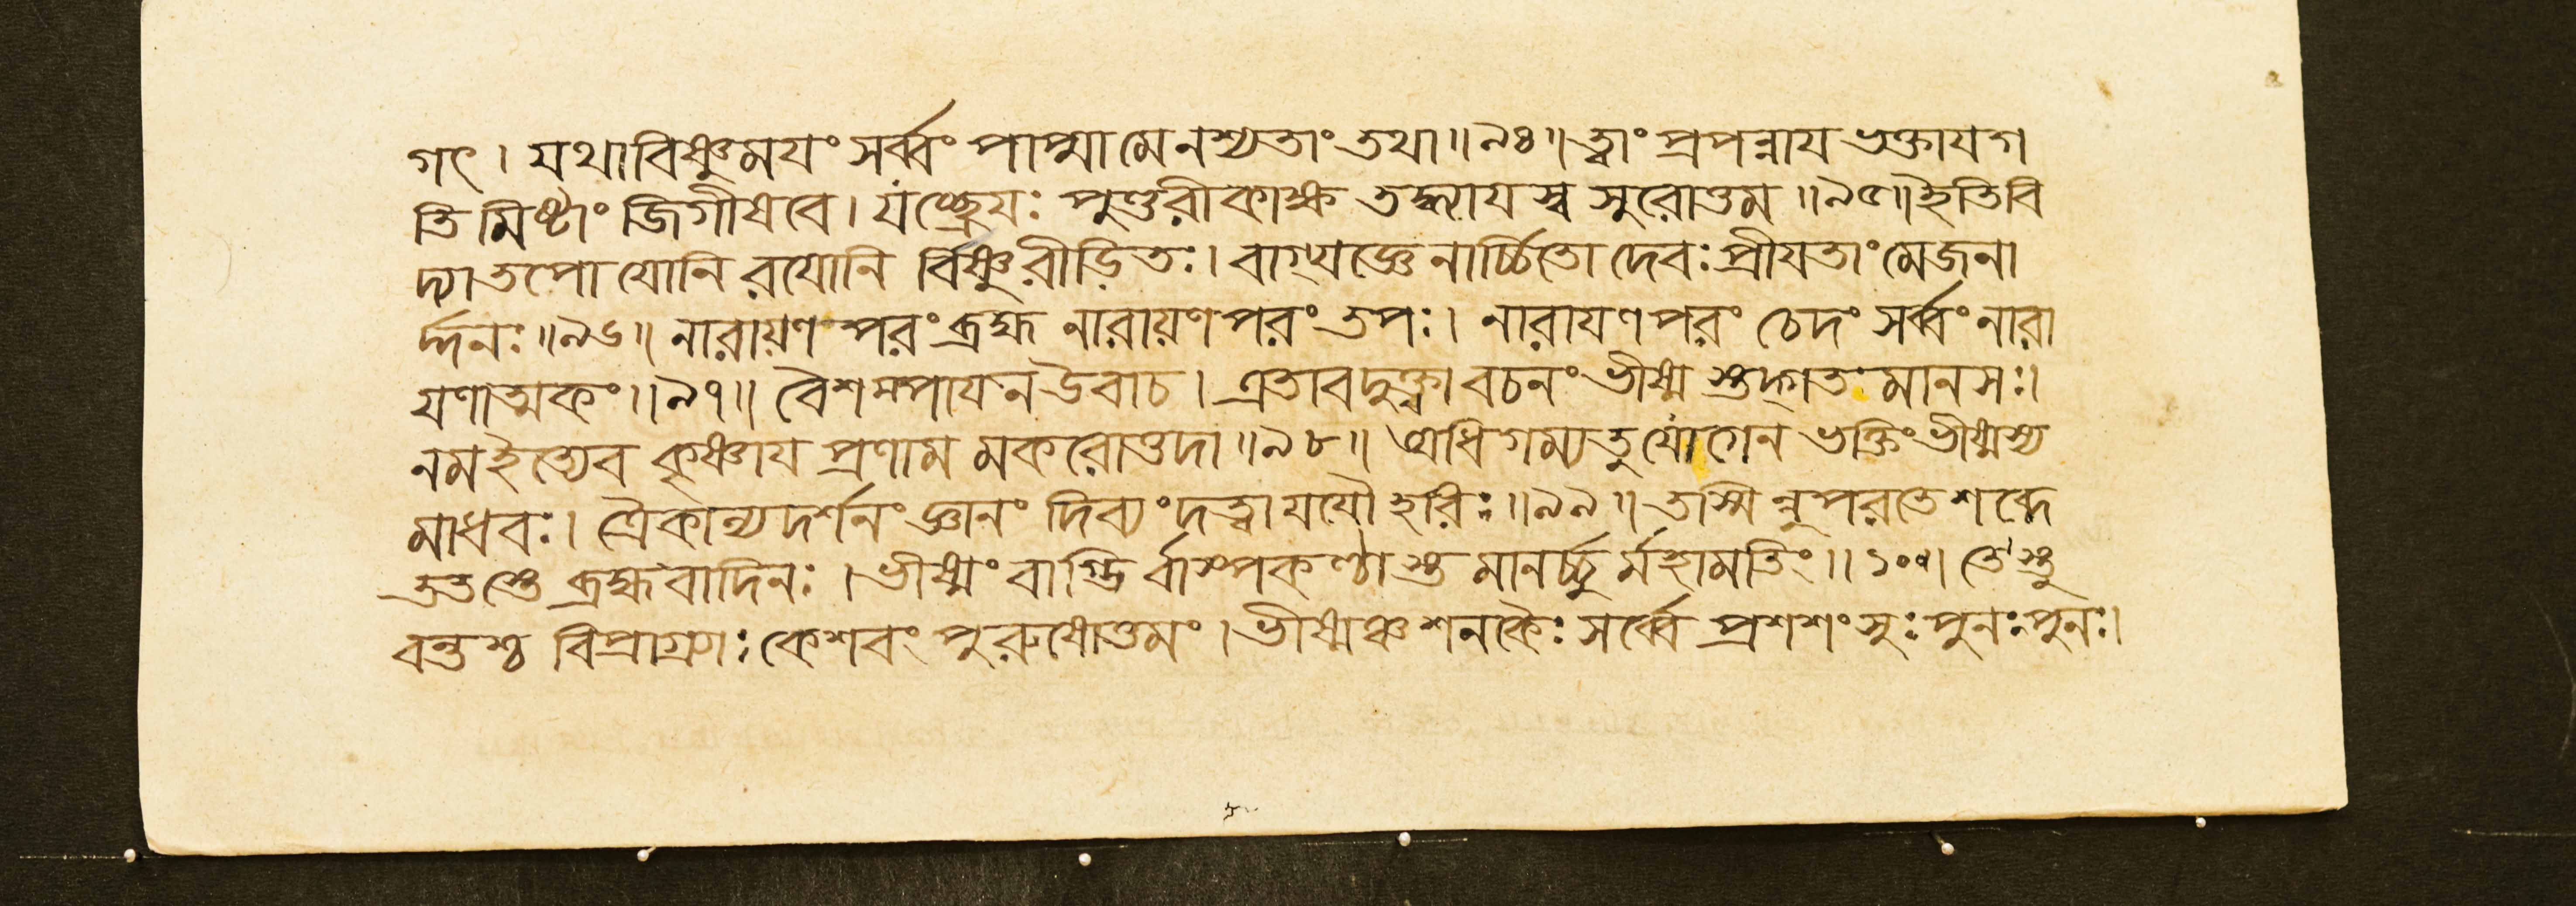 গৎ । যথাবিষ্ণুময়ং সর্ব্বং পাপ্মা মে নশ্যতাং তথা ॥৯৪॥ ত্বাং প্রপন্নায ভক্তাযগ
তিমিষ্টাং জিগীষবে । যংচ্ছ্রেযঃ পুণ্ডরীকাক্ষ তদ্ধ্যাযস্ব সুরোত্তম ॥৯৫॥ ইতিবি
দ্যাতপোযোনি রযোনি র্বিষ্ণুরীড়িতঃ । বাগ্যজ্ঞেনার্চ্চিতো দেবঃ প্রীযতাং মেজনা
র্দ্দনঃ ॥৯৬॥ নারায়ণ পরংব্রহ্ম নারায়ণ পরং তপঃ । নারাযণ পরং চেদং সর্ব্বং নারা
যণাত্মকং ॥৯৭॥ বৈশম্পাযন উবাচ । এতাবদুক্ত্বা বচনং ভীষ্ম স্তদ্গত মানসঃ ।
নমইত্যেব কৃষ্ণায প্রণাম মকরোত্তদা ॥৯৮॥ অধিগম্য তু যোগেন ভক্তিং ভীষ্মস্য
মাধবঃ । ত্রৈকাল্যদর্শনং জ্ঞানং দিব্যং দত্ত্বা যযৌ হরিঃ ॥৯৯॥ তস্মিন্নুপরতে শব্দে
ততস্তে ব্রহ্মবাদিনঃ । ভীষ্মং বাগ্ভি র্বাষ্পকণ্ঠা স্তমানর্চ্চু র্মহামতিং ॥১০০॥ তে স্তু
বন্তশ্চ বিপ্রাগ্র্যাঃ কেশবং পুরুষোত্তমং । ভীষ্মঞ্চ শনকৈঃ সর্ব্বে প্রশশংসুঃ পুনঃপুনঃ ।